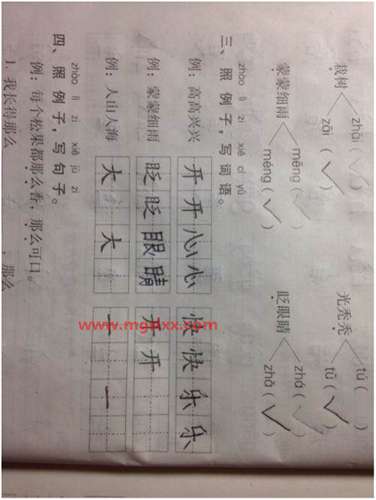 zhāi ( ✓ ) tú ( )
栽树 光秃秃
zāi ( ✓ ) tū ( ✓ )
mēng ( ✓ ) zhá ( ✓ )
蒙蒙细雨 眨眼睛
méng ( ✓ ) zhǎ ( ✓ )
zhào lì zi xiě cí yǔ
三、照例子,写词语。
例:高高兴兴 开开心心 快快乐乐
例:蒙蒙细雨 眨眨眼睛 开开
例:人山人海 大 大 一 一
zhào lì zi xiě jù zi
四、照例子,写句子。
例:每个松果都那么香,那么可口。
1. 我长得那么 ,那么